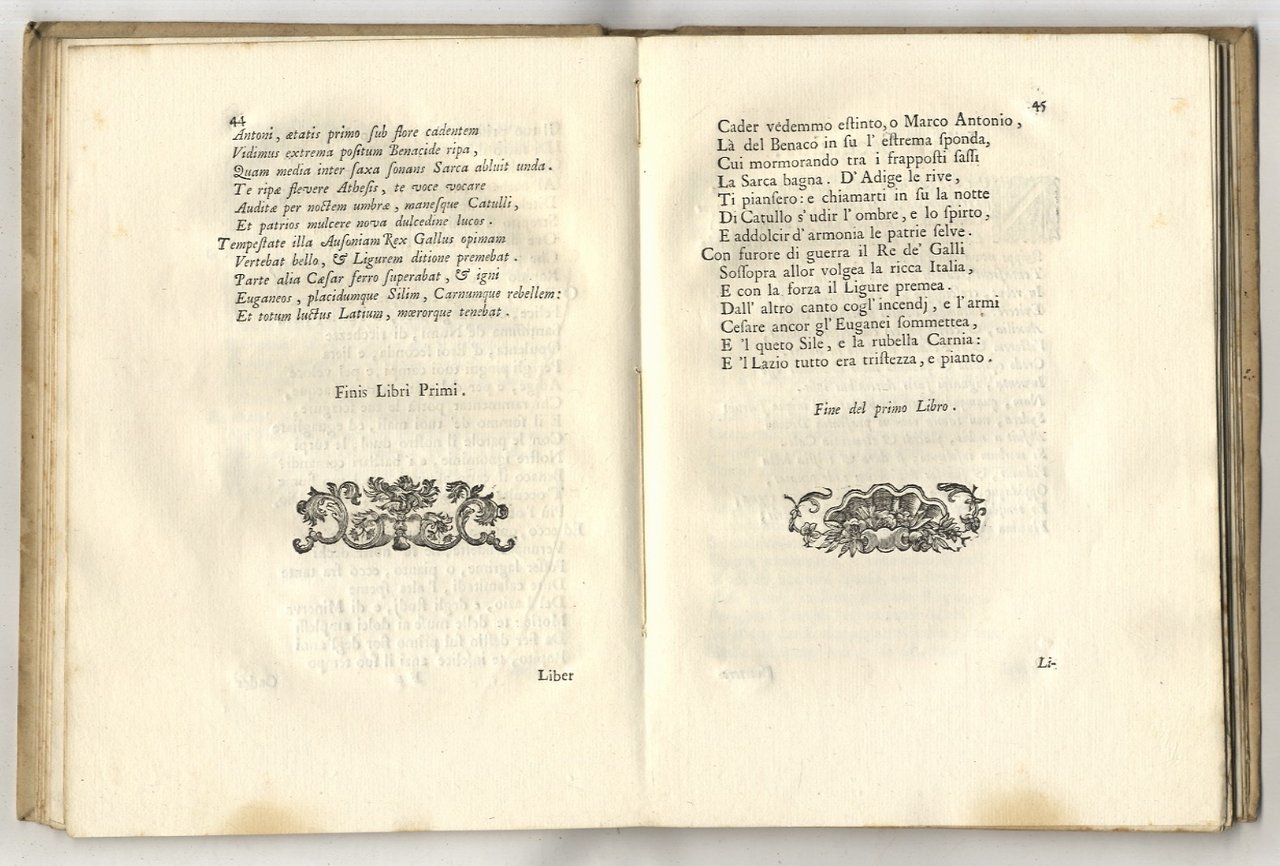 44
Antoni, ætatis primo ſub flore cadentem
Vidimus extrema poſitum Benacide ripa,
Quam media inter ſaxa ſonans Sarca abluit unda.
Te ripæ flevere Atheſis, te voce vocare
Auditæ per noctem umbræ, maneſque Catulli,
Et patrios mulcere nova dulcedine lucos.
Tempeſtate illa Auſoniam Rex Gallus opimam
Vertebat bello, & Ligurem ditione premebat.
Parte alia Cæſar ferro ſuperabat, & igni
Euganeos, placidumque Silim, Carnumque rebellem:
Et totum luctus Latium, mœrorque tenebat.
Finis Libri Primi.
Liber
45
Cader vedemmo eſtinto, o Marco Antonio,
Là del Benaco in ſu l' eſtrema ſponda,
Cui mormorando tra i frappoſti ſaſſi
La Sarca bagna. D' Adige le rive,
Ti pianſero: e chiamarti in ſu la notte
Di Catullo s' udir l' ombre, e lo ſpirto,
E addolcir d' armonia le patrie ſelve.
Con furore di guerra il Re de' Galli
Soſſopra allor volgea la ricca Italia,
E con la forza il Ligure premea.
Dall' altro canto cogl' incendj, e l' armi
Ceſare ancor gl' Euganei ſommettea,
E 'l queto Sile, e la rubella Carnia:
E 'l Lazio tutto era triſtezza, e pianto.
Fine del primo Libro.
Li-